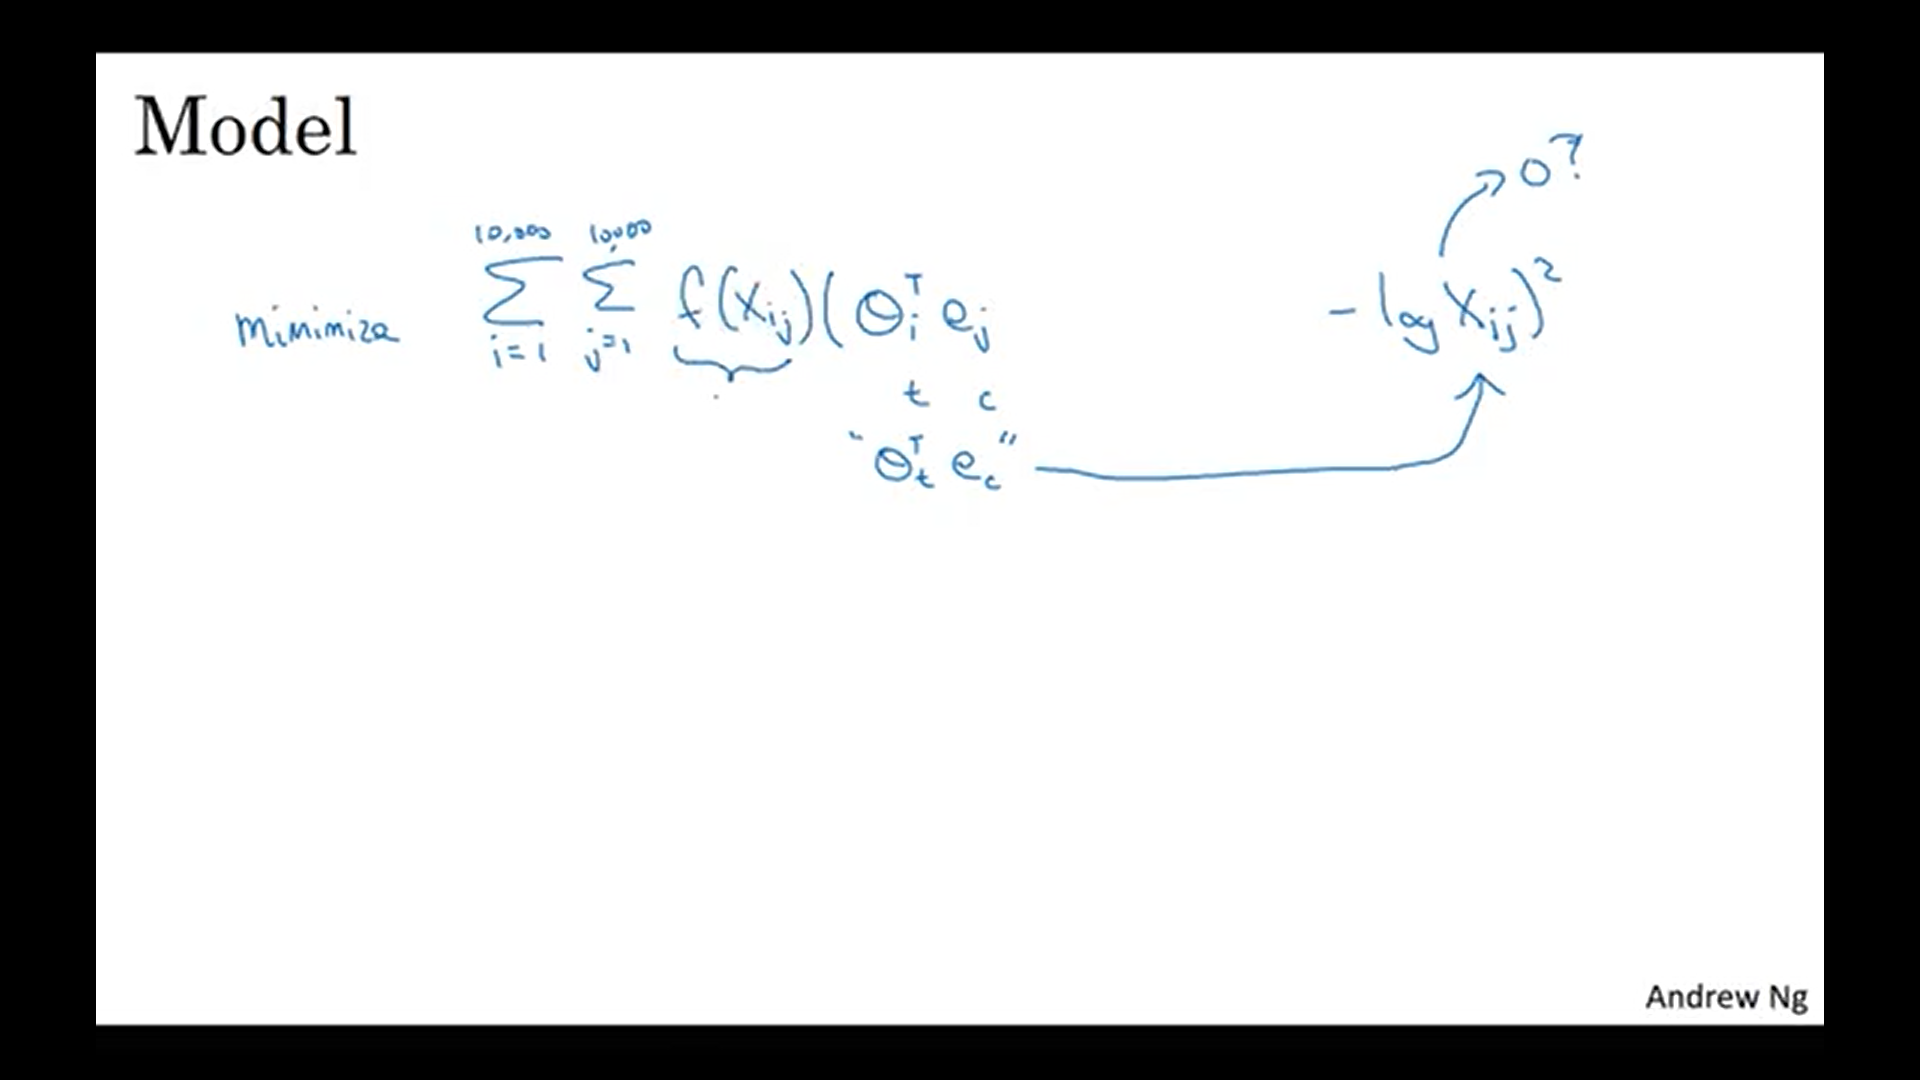 Model
minimize 10,000 Σ i=1 10,000 Σ j=1 f(Xij)(θiᵀ ej - log Xij)² → 0?
t c
"θtᵀ ec"
Andrew Ng